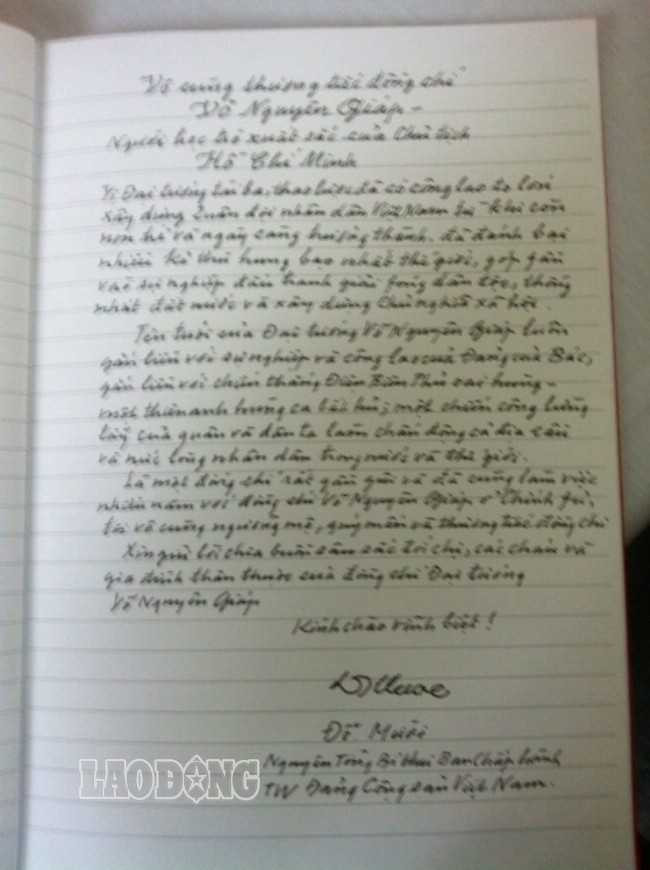 Vô cùng thương tiếc đồng chí
Võ Nguyên Giáp -
Người học trò xuất sắc của Chủ tịch
Hồ Chí Minh
Vị Đại tướng tài ba, thao lược đã có công lao to lớn
xây dựng Quân đội nhân dân Việt Nam từ khi còn
non trẻ và ngày càng trưởng thành. đã đánh bại
nhiều kẻ thù hung bạo nhất thế giới, góp phần
vào sự nghiệp đấu tranh giải fóng dân tộc, thống
nhất đất nước và xây dựng Chủ nghĩa xã hội.
Tên tuổi của Đại tướng Võ Nguyên Giáp luôn
gắn liền với sự nghiệp và công lao của Đảng của Bác,
gắn liền với chiến thắng Điện Biên Phủ oai hùng -
một thiên anh hùng ca bất hủ; một chiến công lừng
lẫy của quân và dân ta làm chấn động cả địa cầu
và nức lòng nhân dân trong nước và thế giới.
Là một đồng chí rất gần gũi và đã cùng làm việc
nhiều năm với đồng chí Võ Nguyên Giáp ở Chính fủ,
tôi vô cùng ngưỡng mộ, quý mến và thương tiếc đồng chí
Xin gửi lời chia buồn sâu sắc tới chị, các cháu và
gia đình thân thuộc của đồng chí Đại tướng
Võ Nguyên Giáp
Kính chào vĩnh biệt!
Đỗ Mười
Nguyên Tổng Bí thư Ban Chấp hành
TW Đảng Cộng sản Việt Nam.
LAO ĐỘNG